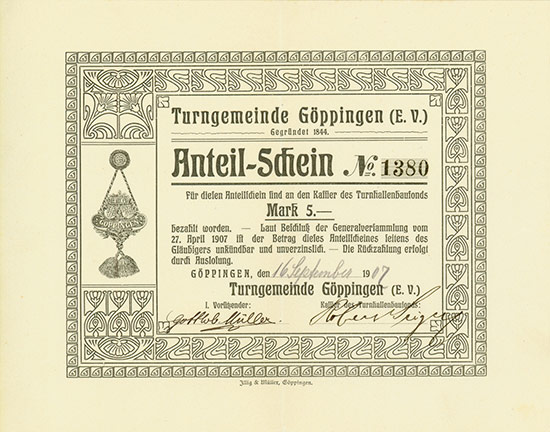 Turngemeinde Göppingen (E. V.)
Gegründet 1844.
Anteil-Schein No. 1380
Für diesen Anteilschein sind an den Kassier des Turnhallenbaufonds
Mark 5.—
bezahlt worden. — Laut Beschluß der Generalversammlung vom
27. April 1907 ist der Betrag dieses Anteilscheines seitens des
Gläubigers unkündbar und unverzinslich. — Die Rückzahlung erfolgt
durch Auslosung.
GÖPPINGEN, den 16 September 1907
Turngemeinde Göppingen (E. V.)
I. Vorstehender: Kassier des Turnhallenbaufonds:
Gottlob Müller.
Illig & Müller, Göppingen.